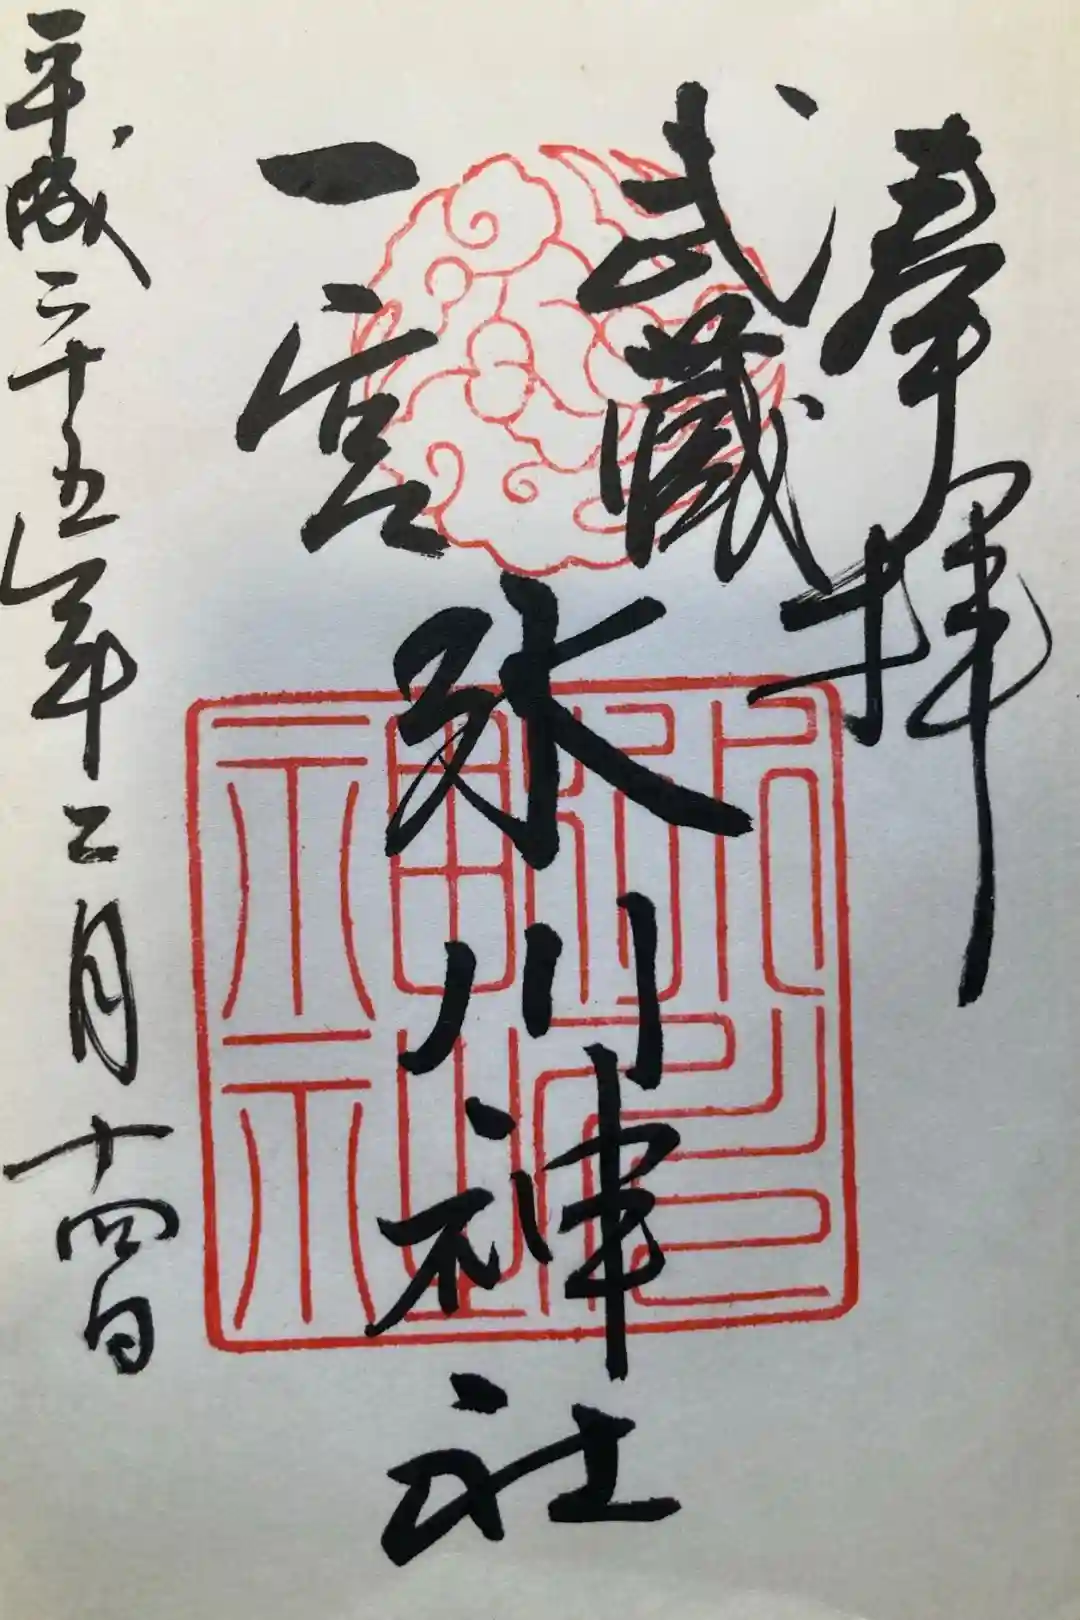 奉拝
武蔵
一宮
氷川神社
平成二十五年二月十四日
氷川神社